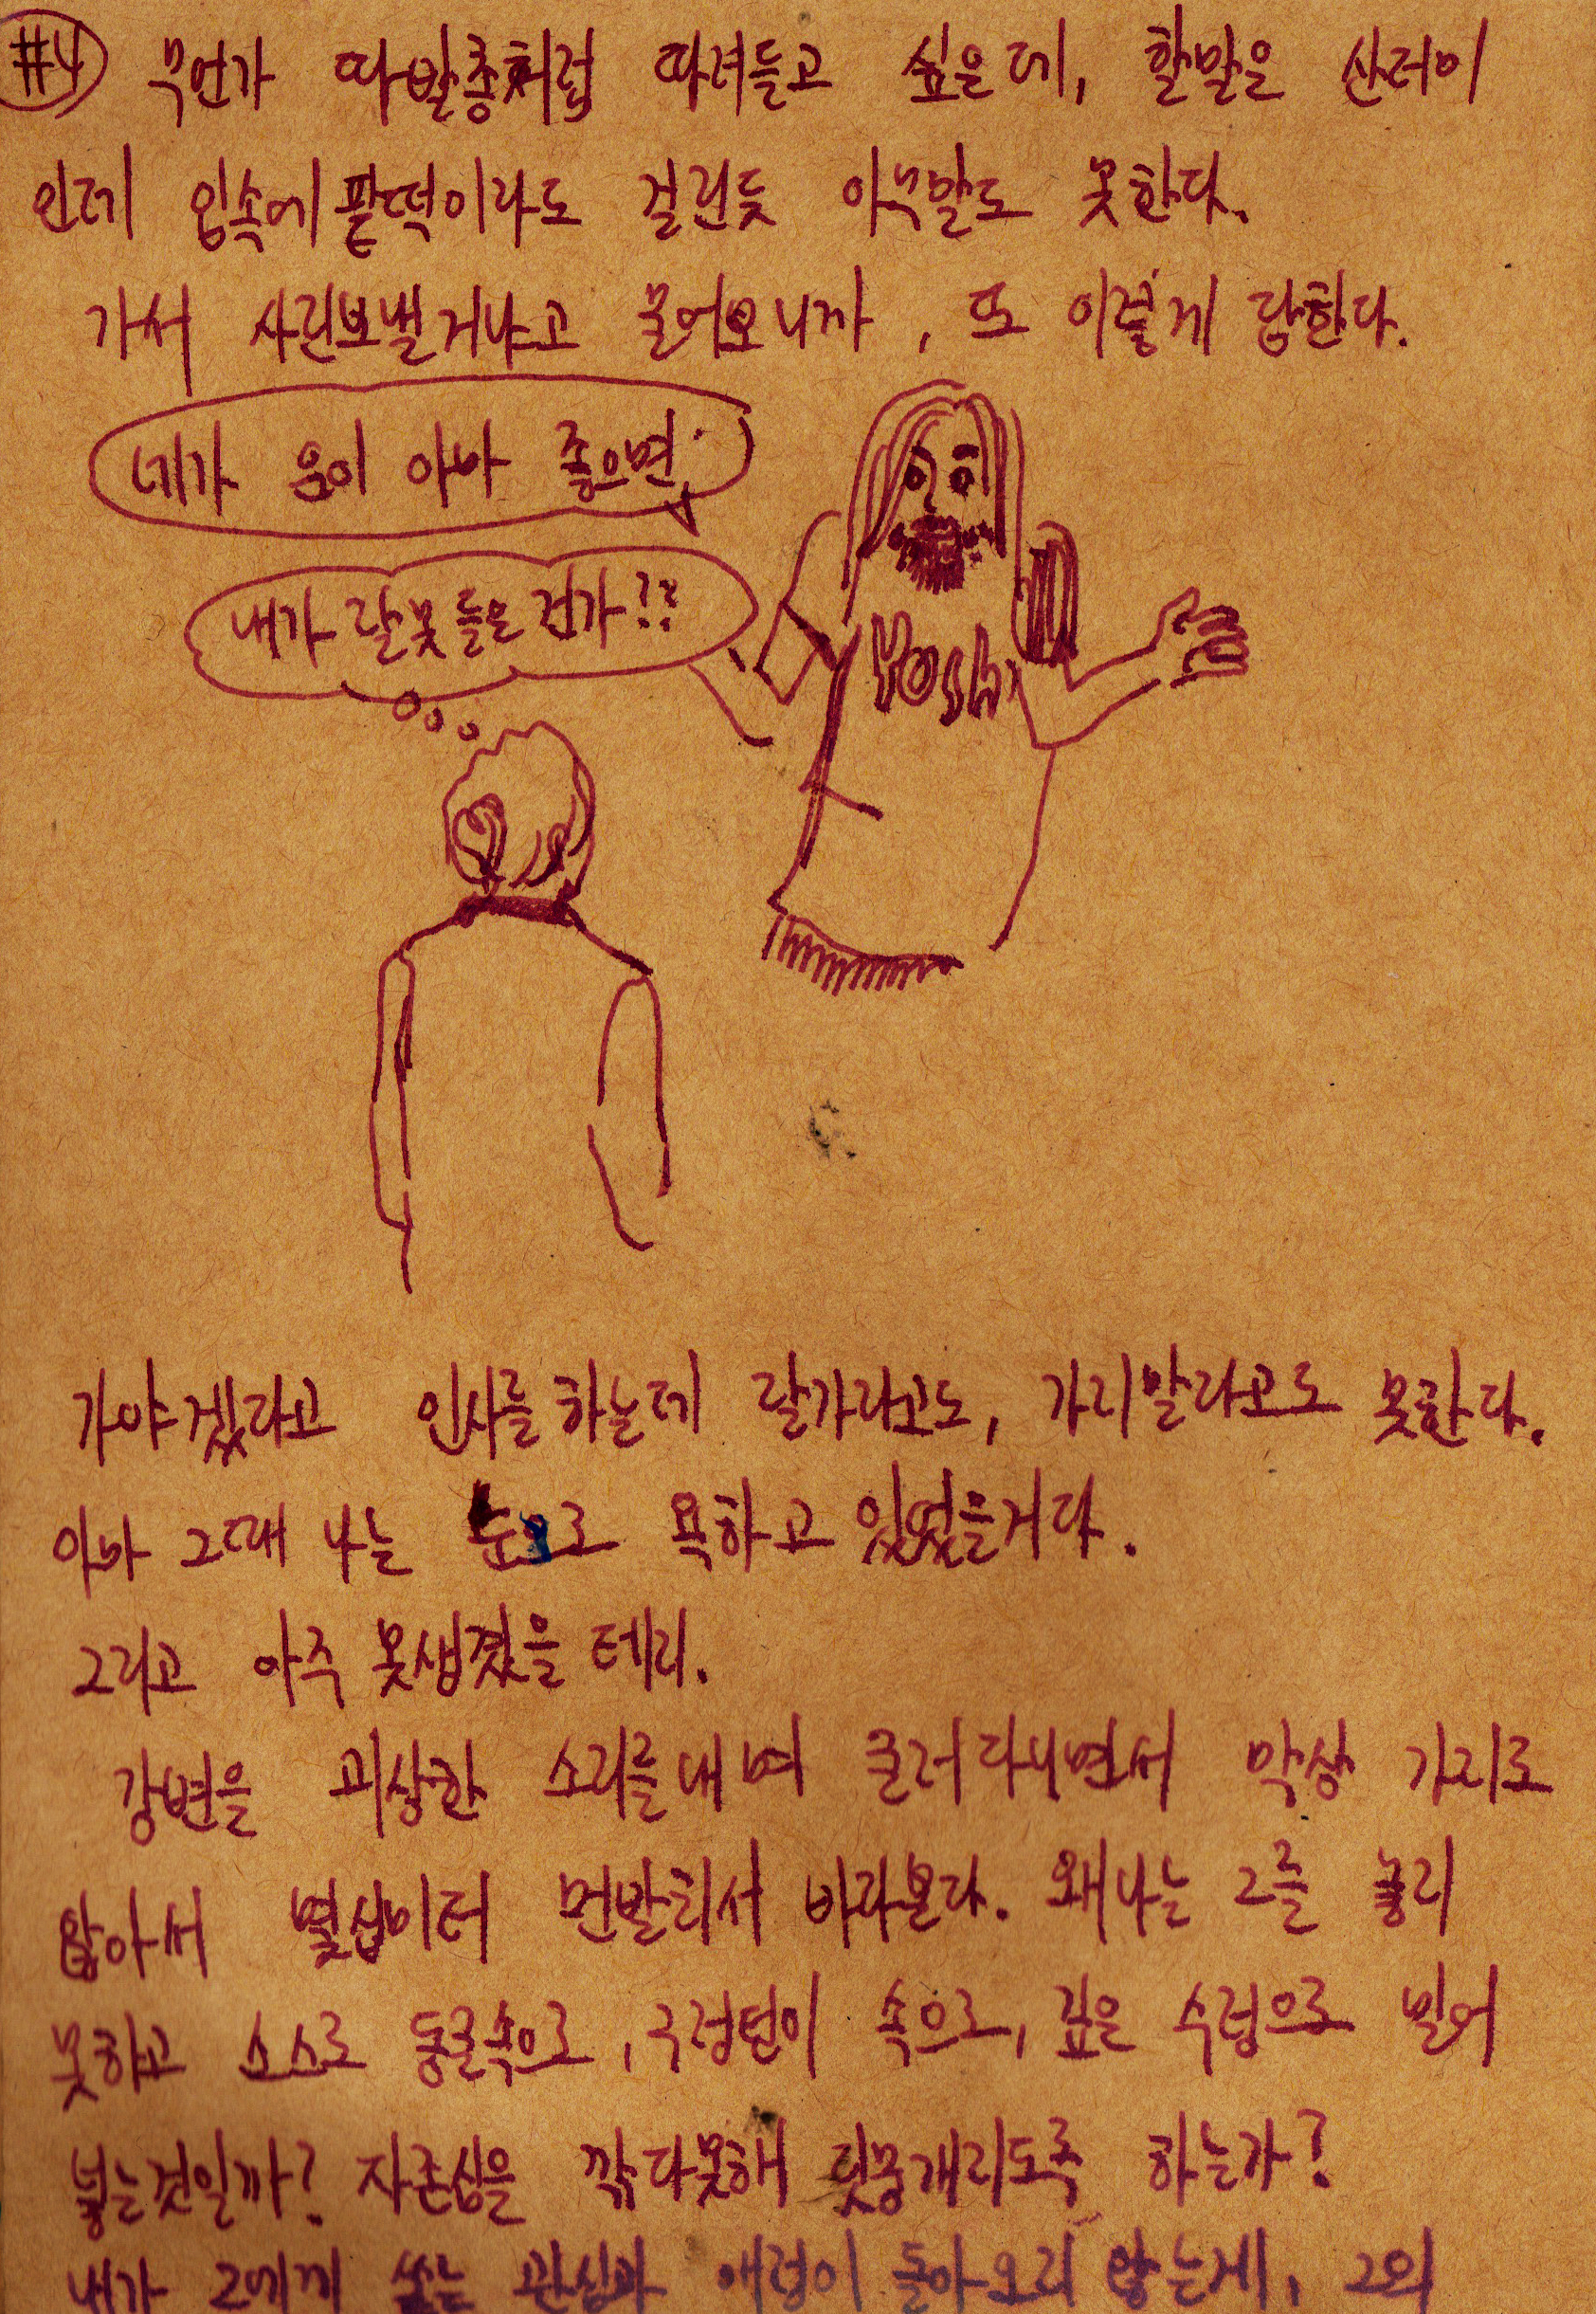 #4 무언가 따발총처럼 따려들고 싶은데, 할말은 산더미
인데 입속에 팥떡이라도 걸린듯 아무말도 못한다.
가서 사진보낼거냐고 물어오니까, 또 이렇게 답한다.
네가 음이 아마 좋으면
내가 잘못들은건가!?
Yoshi
가야겠다고 인사를하는데 잘가라고도, 가지말라고도 못한다.
아마 그때 나는 눈으로 욕하고 있었을거다.
그리고 아주 못생겼을 테지.
강변을 괴상한 소리를 내며 굴러다니면서 막상 가지로
않아서 몇십미터 먼발치서 바라본다. 왜 나는 그를 놓지
못하고 스스로 동굴속으로, 구렁텅이 속으로, 깊은 수렁으로 밀어
넣는것일까? 자존심을 깎다못해 뭉개지도록 하는가?
내가 그에게 쏟는 관심과 애정이 돌아오지 않는게, 그의